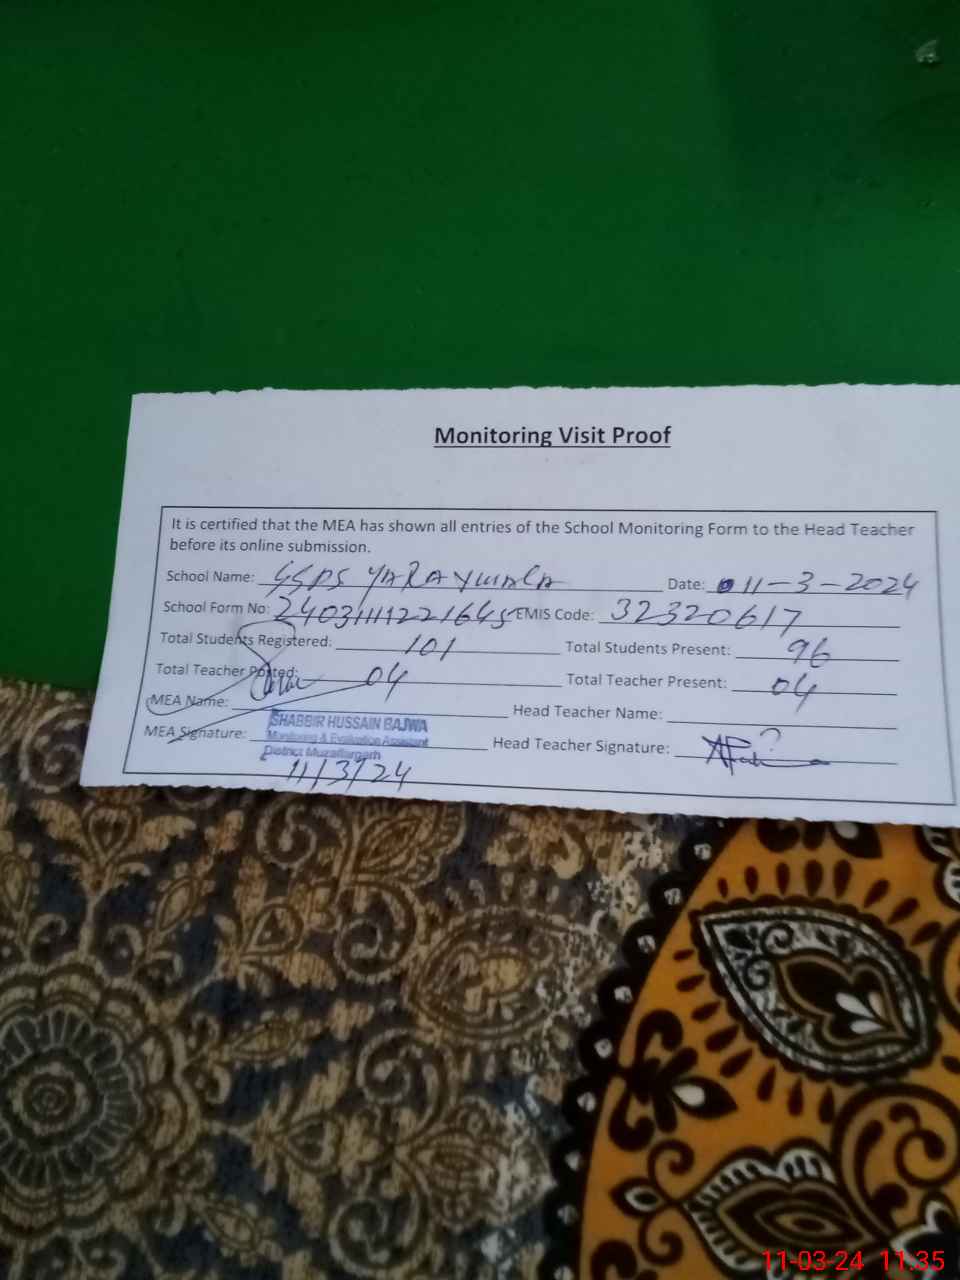 Monitoring Visit Proof
It is certified that the MEA has shown all entries of the School Monitoring Form to the Head Teacher
before its online submission.
School Name: GSPS YARAYWALA Date: 11-3-2024
School Form No: EMIS Code: 32320617
Total Students Registered: 101 Total Students Present: 96
Total Teacher Posted: 04 Total Teacher Present: 04
MEA Name: Head Teacher Name:
MEA Signature: Head Teacher Signature:
SHABBIR HUSSAIN BAJWA
Monitoring & Evaluation Assistant
District Muzaffargarh
11/3/24
11-03-24 11.35